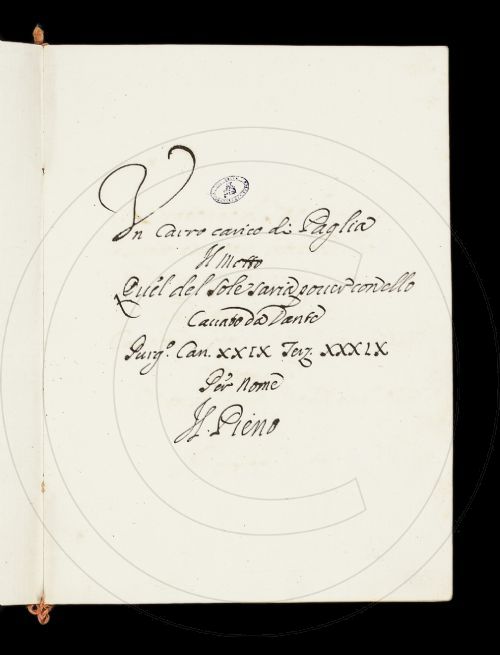 Un Carro carico di Paglia
Il Motto
Quel del Sole saria pover con ello
Cavato da Dante
Purg.º Can. XXIX Terz. XXXIX
Per Nome
Il Pieno